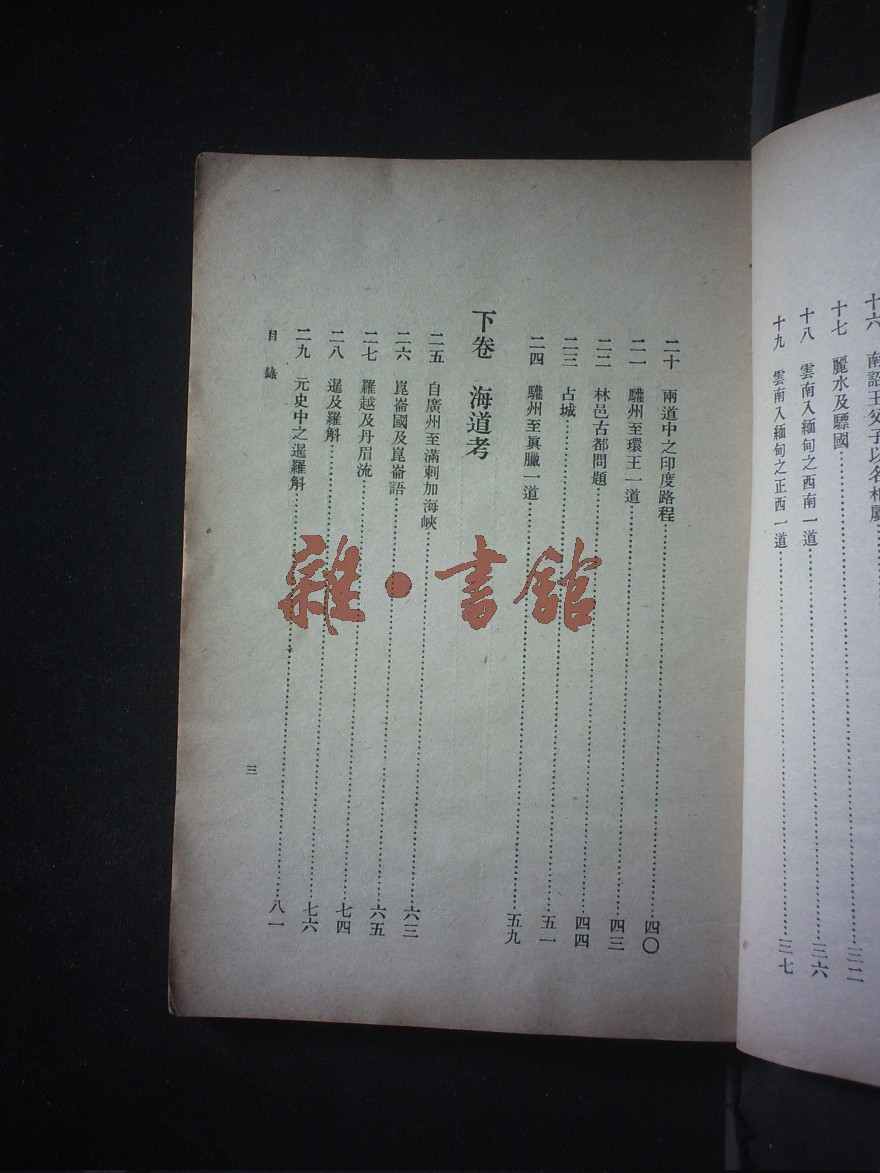 十六 南詔王父子以名相屬……三二
十七 麗水及驃國……三二
十八 雲南入緬甸之西南一道……三六
十九 雲南入緬甸之正西一道……三七
二十 兩道中之印度路程……四〇
二一 驩州至環王一道……四三
二二 林邑古都問題……四四
二三 占城……五一
二四 驩州至眞臘一道……五九
下卷 海道考
二五 自廣州至滿剌加海峽……六三
二六 崑崙國及崑崙語……六五
二七 羅越及丹眉流……七四
二八 暹及羅斛……七六
二九 元史中之暹羅斛……八一
目錄
三
雜·書館